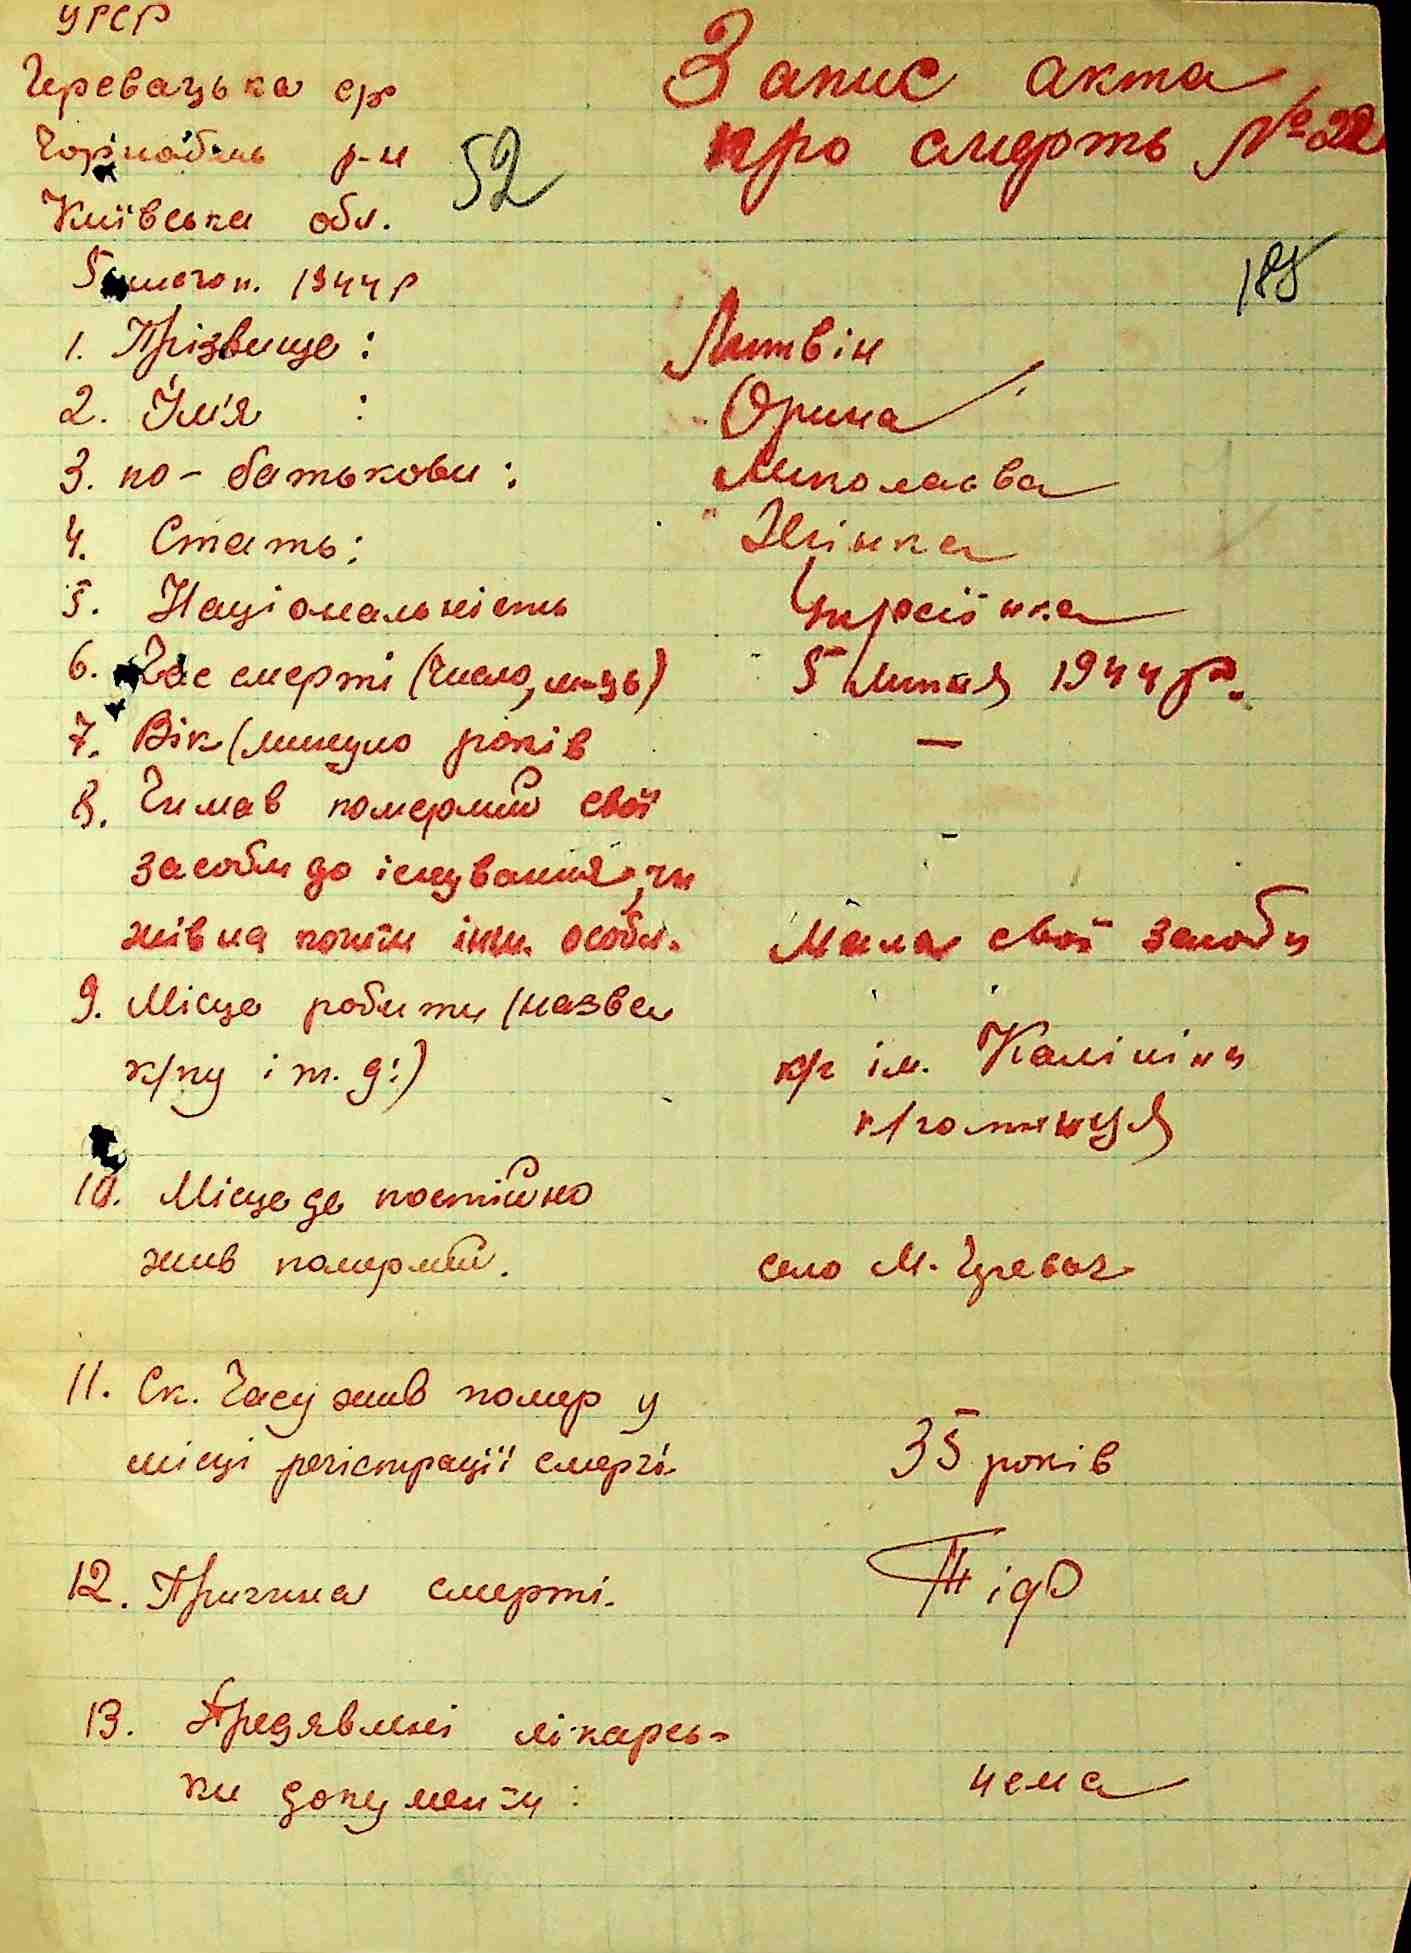 УРСР
Черевацька ср
Чорнобиль р-н
Київська обл.
52
Запис акта
про смерть № 22
185
5 липня 1944 р
1. Прізвище: Литвін
2. Ім'я : Орина
3. по-батькови: Миколаєва
4. Стать: Жінка
5. Національність Українка
6. Час смерті (число, м-ць) 5 липня 1944 р.
7. Вік (минуло років —
8. Чи мав померлий свої
засоби до існування, чи
жів на кошти інш. особи. Мала свої засоби
9. Місце роботи (назва
к/пу і т. д:) к/г ім. Калініна
к/гопниця
10. Місце де постійно
жив померлий. село М. Черевач
11. Ск. Часу жив помер у
місці регістрації смерті. 35 років
12. Причина смерті. Тіф
13. Предявлені лікарсь-
ки документи: нема